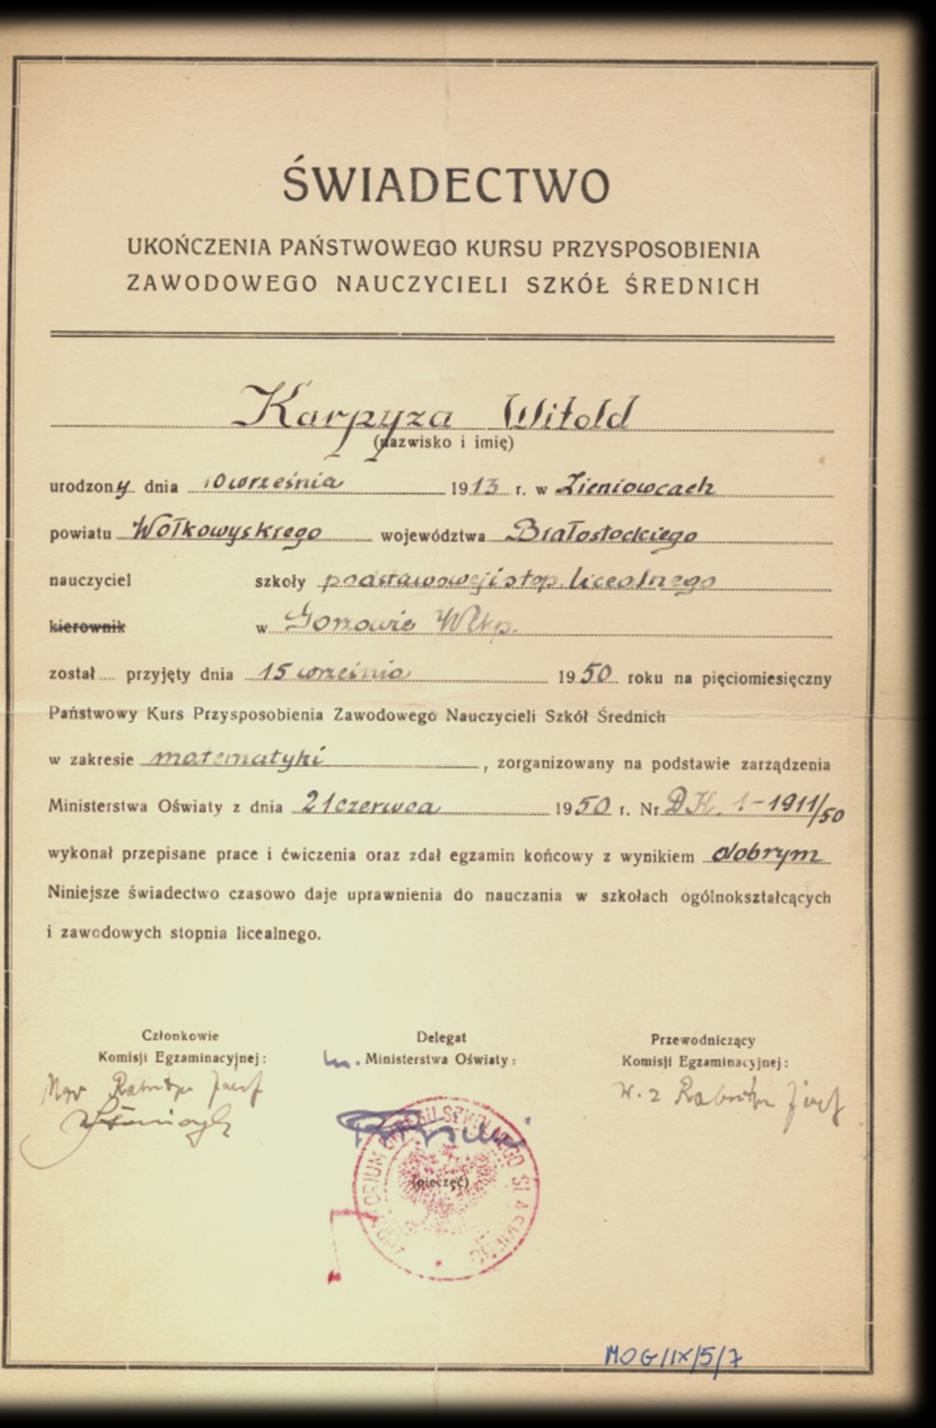 ŚWIADECTWO
UKOŃCZENIA PAŃSTWOWEGO KURSU PRZYSPOSOBIENIA
ZAWODOWEGO NAUCZYCIELI SZKÓŁ ŚREDNICH
Karpyza Witold
(nazwisko i imię)
urodzony dnia 10 września 1913 r. w Zieniowcach
powiatu Wołkowyskiego województwa Białostockiego
nauczyciel szkoły podstawowej i stop. licealnego
kierownik w Gorzowie Wlkp.
został.... przyjęty dnia 15 września 1950 roku na pięciomiesięczny
Państwowy Kurs Przysposobienia Zawodowego Nauczycieli Szkół Średnich
w zakresie matematyki, zorganizowany na podstawie zarządzenia
Ministerstwa Oświaty z dnia 21 czerwca 1950 r. Nr DK. 1-1911/50
wykonał przepisane prace i ćwiczenia oraz zdał egzamin końcowy z wynikiem dobrym
Niniejsze świadectwo czasowo daje uprawnienia do nauczania w szkołach ogólnokształcących
i zawodowych stopnia licealnego.
Członkowie Delegat Przewodniczący
Komisji Egzaminacyjnej: Ministerstwa Oświaty: Komisji Egzaminacyjnej:
Mgr Józef w. z Józef
OKRĘGU SZKOLNEGO
(pieczęć)
MOG/IX/5/7